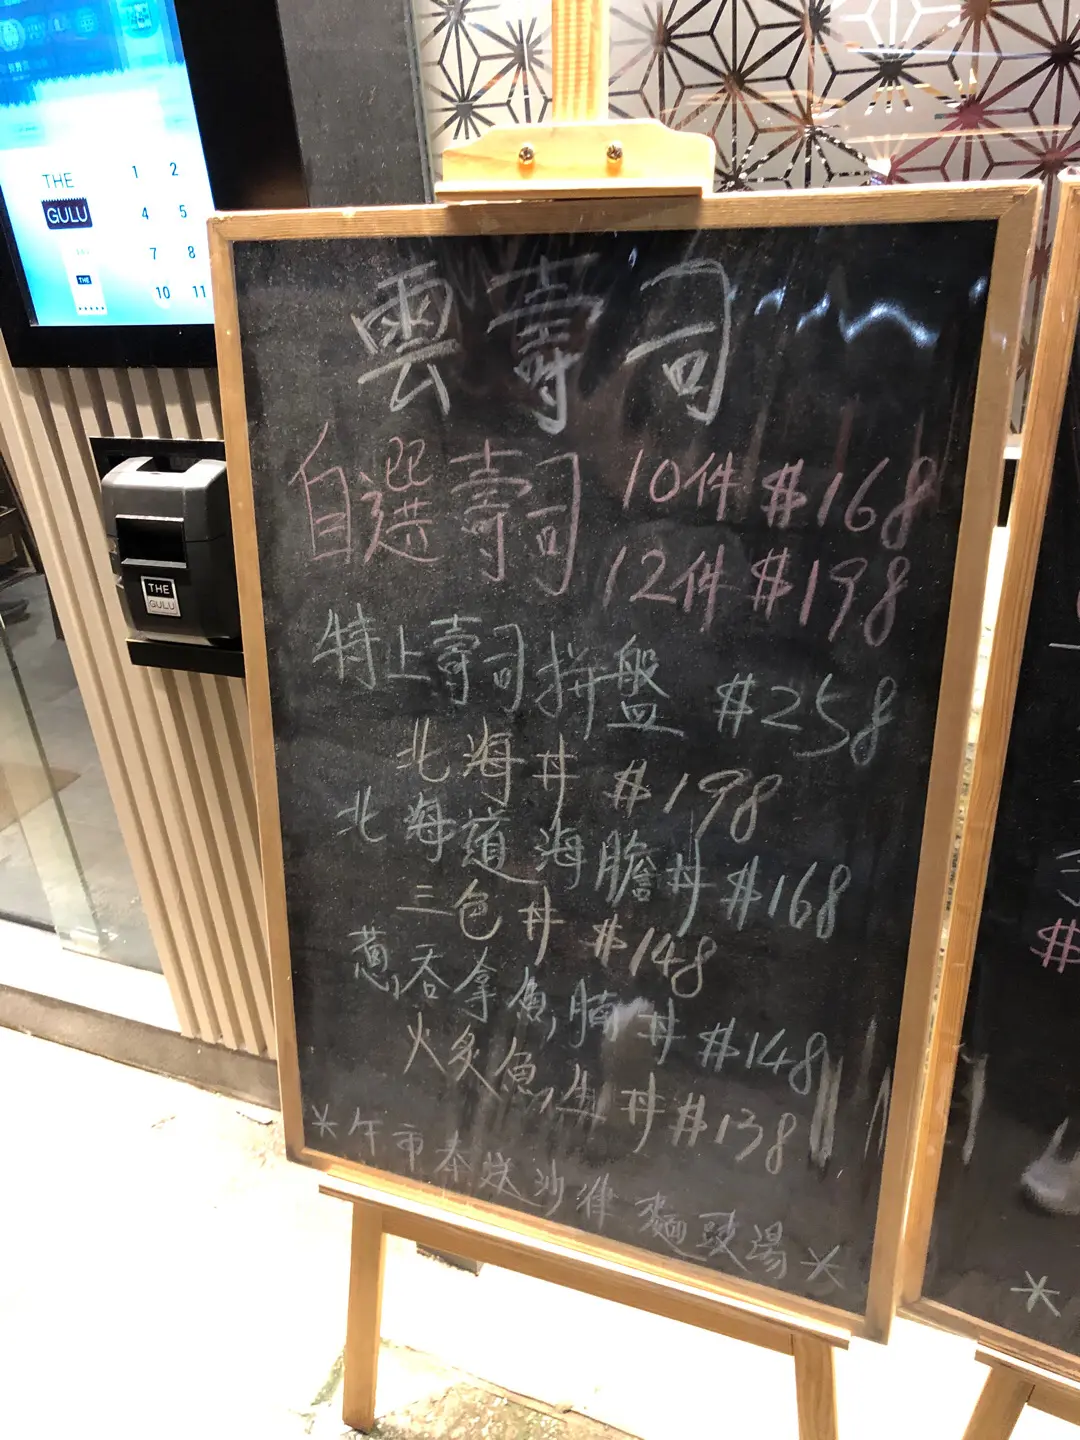 THE
GULU
1 2
4 5
7 8
10 11
THE
THE
GULU
雲壽司
自選壽司 10件 $168
12件 $198
特上壽司拼盤 $258
北海丼 $198
北海道海膽丼 $168
三色丼 $148
蔥吞拿魚腩丼 $148
火炙魚生丼 $138
*午市奉送沙律 麵豉湯*
$
*